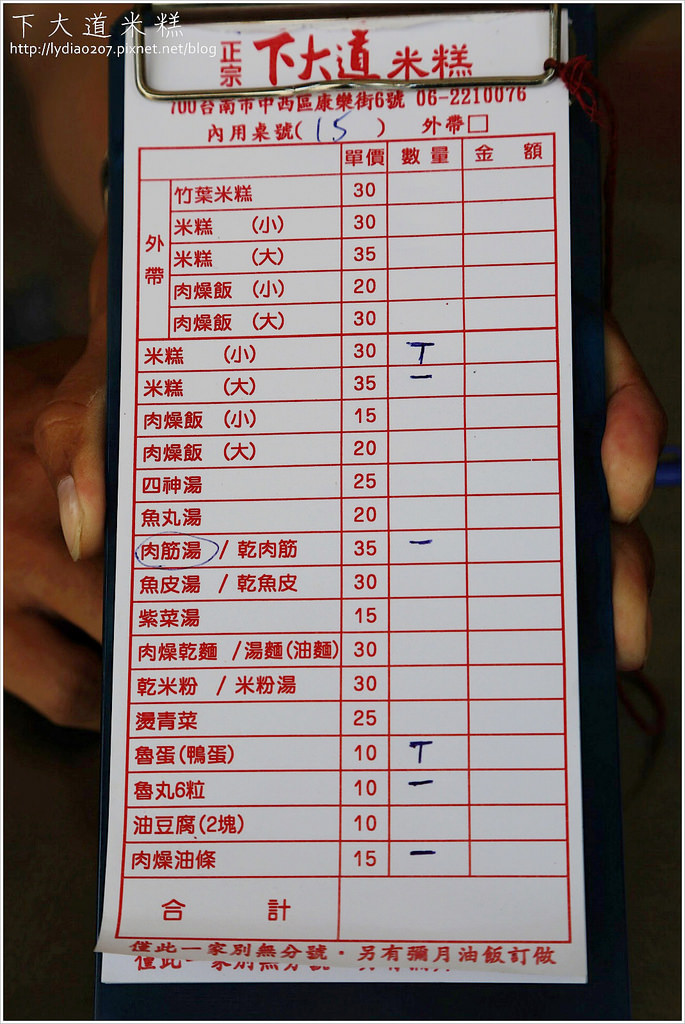 下大道米糕
http://lydia0207.pixnet.net/blog
正宗 下大道米糕
700台南市中西區康樂街6號 06-2210076
內用桌號( 15 ) 外帶□
單價 數量 金額
外帶
竹葉米糕 30
米糕 (小) 30
米糕 (大) 35
肉燥飯 (小) 20
肉燥飯 (大) 30
米糕 (小) 30 T
米糕 (大) 35 一
肉燥飯 (小) 15
肉燥飯 (大) 20
四神湯 25
魚丸湯 20
肉筋湯 / 乾肉筋 35 一
魚皮湯 / 乾魚皮 30
紫菜湯 15
肉燥乾麵 /湯麵(油麵) 30
乾米粉 / 米粉湯 30
燙青菜 25
魯蛋(鴨蛋) 10 T
魯丸6粒 10 一
油豆腐(2塊) 10
肉燥油條 15 一
合計
僅此一家別無分號·另有彌月油飯訂做